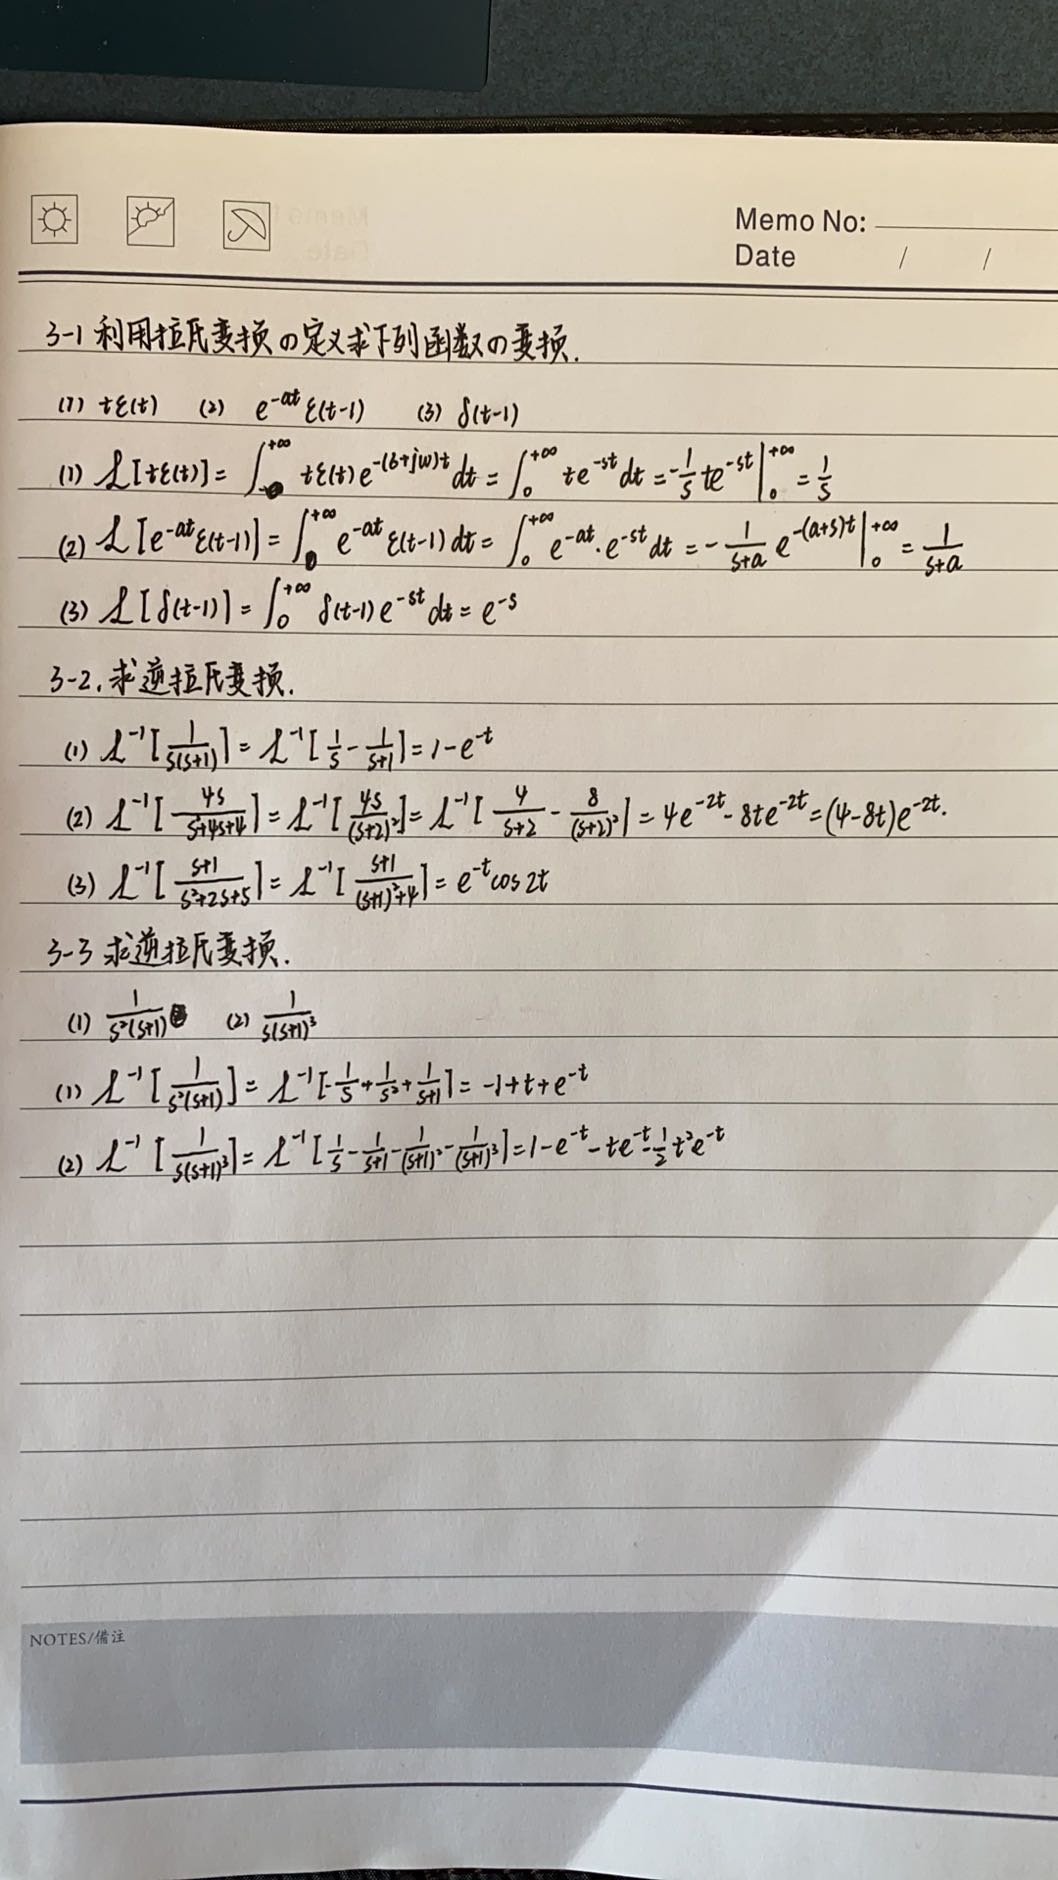 Memo No:
Date / /
3-1 利用拉氏变换の定义求下列函数の变换.
(1) tε(t) (2) e^{-at}ε(t-1) (3) δ(t-1)
(1) ℒ[tε(t)] = ∫_0^{+∞} tε(t)e^{-(δ+jω)t}dt = ∫_0^{+∞} te^{-st}dt = -1/s te^{-st}|_0^{+∞} = 1/s
(2) ℒ[e^{-at}ε(t-1)] = ∫_0^{+∞} e^{-at}ε(t-1)dt = ∫_0^{+∞} e^{-at}·e^{-st}dt = -1/(s+a) e^{-(a+s)t}|_0^{+∞} = 1/(s+a)
(3) ℒ[δ(t-1)] = ∫_0^{+∞} δ(t-1)e^{-st}dt = e^{-s}
3-2. 求逆拉氏变换.
(1) ℒ^{-1}[1/(s(s+1))] = ℒ^{-1}[1/s - 1/(s+1)] = 1-e^{-t}
(2) ℒ^{-1}[4s/(s²+4s+4)] = ℒ^{-1}[4s/(s+2)²] = ℒ^{-1}[4/(s+2) - 8/(s+2)²] = 4e^{-2t} - 8te^{-2t} = (4-8t)e^{-2t}.
(3) ℒ^{-1}[(s+1)/(s²+2s+5)] = ℒ^{-1}[(s+1)/((s+1)²+4)] = e^{-t}cos2t
3-3 求逆拉氏变换.
(1) 1/(s²(s+1)) (2) 1/(s(s+1)³)
(1) ℒ^{-1}[1/(s²(s+1))] = ℒ^{-1}[-1/s + 1/s² + 1/(s+1)] = -1+t+e^{-t}
(2) ℒ^{-1}[1/(s(s+1)³)] = ℒ^{-1}[1/s - 1/(s+1) - 1/(s+1)² - 1/(s+1)³] = 1-e^{-t}-te^{-t}-1/2 t²e^{-t}
NOTES/備注